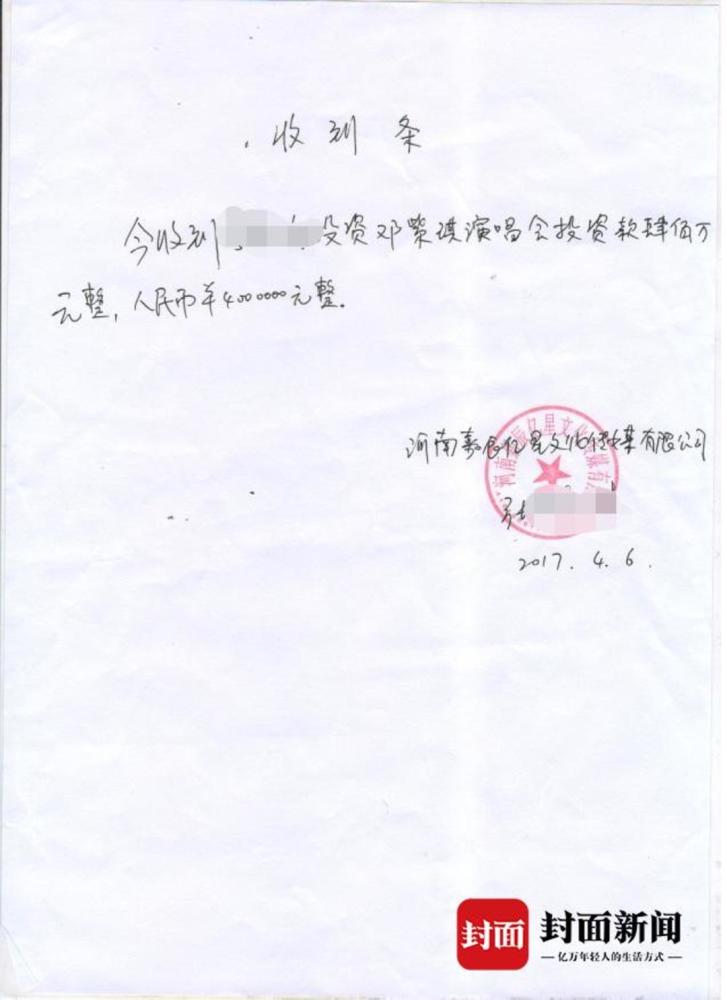 收到条
今收到 投资邓紫琪演唱会投资款肆佰万
元整,人民币¥4000000元整.
河南嘉辰亿星文化传媒有限公司
张
2017.4.6.
封面 封面新闻
亿万年轻人的生活方式